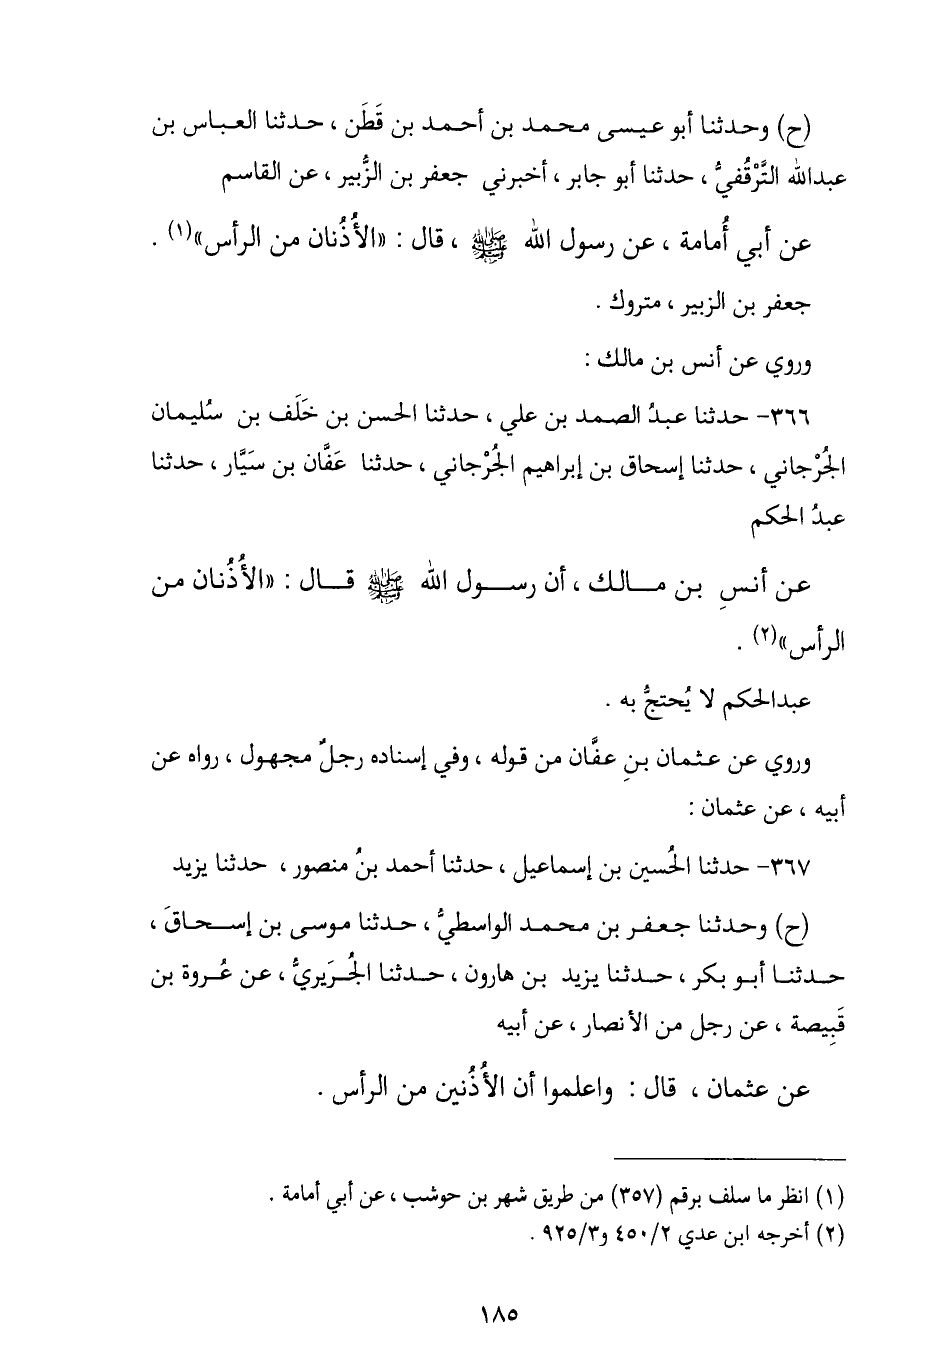 (ح) وحـدثنا أبو عيـسى محـمـد بن أحـمـد بن قَطَن ، حـدثنا العبـاس بن
عبدالله التَّرْقُفيُّ ، حدثنا أبو جابر ، أخبرني جعفر بن الزُّبير ، عن القاسم
عن أبي أُمامة ، عن رسول الله ﷺ ، قال : «الأُذُنان من الرأس»(١) .
جعفر بن الزبير ، متروك .
وروي عن أنس بن مالك :
٣٦٦- حدثنا عبدُ الصمد بن علي ، حدثنا الحسن بن خَلَف بن سُليمان
الجُرْجاني ، حدثنا إسحاق بن إبراهيم الجُرْجاني ، حدثنا عَفَّان بن سَيَّار ، حدثنا
عبدُ الحكم
عـن أنـسِ بن مـالـك ، أن رسـول الله ﷺ قـال : «الأُذُنـان مـن
الرأس»(٢) .
عبدالحكم لا يُحتجُّ به .
وروي عن عثمان بنِ عفَّان من قوله ، وفي إسناده رجلٌ مجهول ، رواه عن
أبيه ، عن عثمان :
٣٦٧- حدثنا الحُسين بن إسماعيل ، حدثنا أحمد بنُ منصور ، حدثنا يزيد
(ح) وحـدثنا جـعفـر بن محـمـد الواسطيُّ ، حـدثنا موسى بن إسـحـاقَ ،
حـدثنـا أبـو بكر ، حـدثنا يزيد بن هارون ، حـدثنا الجُرَيريُّ ، عن عُروة بن
قَبِيصة ، عن رجل من الأنصار ، عن أبيه
عن عثمان ، قال : واعلموا أن الأُذُنين من الرأس .
(١) انظر ما سلف برقم (٣٥٧) من طريق شهر بن حوشب ، عن أبي أمامة .
(٢) أخرجه ابن عدي ٤٥٠/٢ و٩٢٥/٣ .
١٨٥